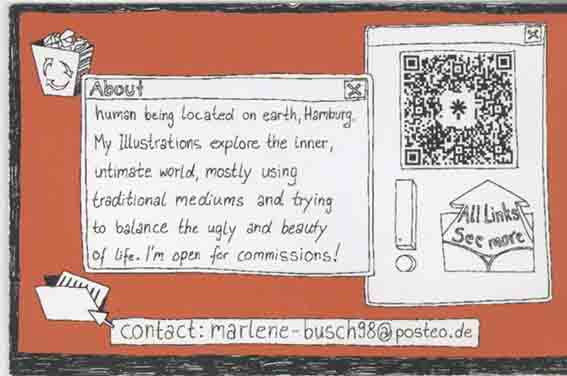 About
human being located on earth, Hamburg.
My Illustrations explore the inner,
intimate world, mostly using
traditional mediums and trying
to balance the ugly and beauty
of life. I'm open for commissions!
All Links
See more
contact: marlene-busch98@posteo.de